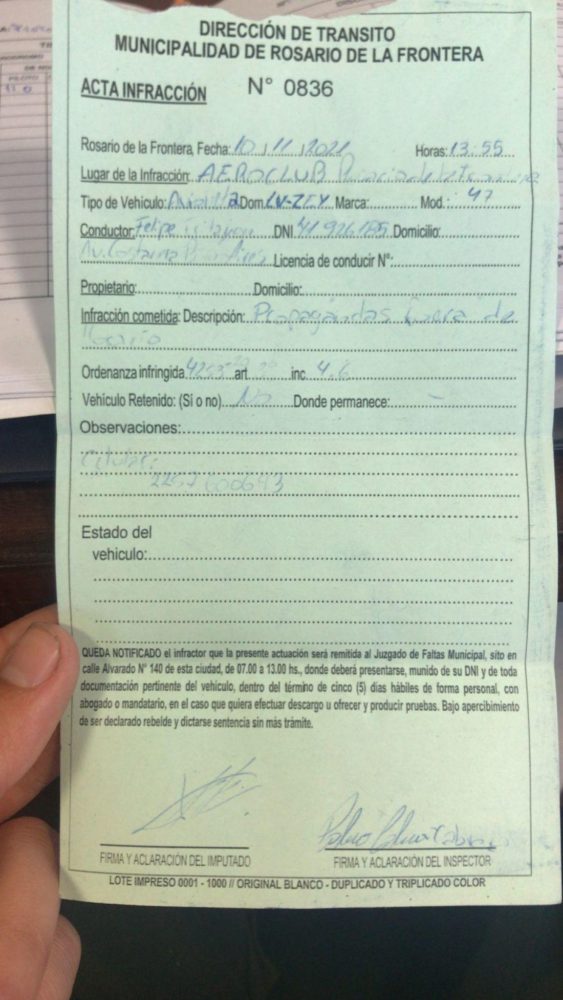 DIRECCIÓN DE TRANSITO
MUNICIPALIDAD DE ROSARIO DE LA FRONTERA
ACTA INFRACCIÓN N° 0836
Rosario de la Frontera, Fecha: 10/11/2021 Horas: 13:55
Lugar de la Infracción: AEROCLUB
Tipo de Vehículo: Dom. LV-ZEY Marca: Mod.: 47
Conductor: Felipe DNI Domicilio:
Av. Licencia de conducir N°:
Propietario: Domicilio:
Infracción cometida: Descripción: Propagandas fuera de
Ordenanza infringida art inc 4.6
Vehículo Retenido: (Sí o no) No Donde permanece: -
Observaciones:
Celular:
2257600643
Estado del
vehiculo:
QUEDA NOTIFICADO el infractor que la presente actuación será remitida al Juzgado de Faltas Municipal, sito en
calle Alvarado N° 140 de esta ciudad, de 07.00 a 13.00 hs., donde deberá presentarse, munido de su DNI y de toda
documentación pertinente del vehículo, dentro del término de cinco (5) dias hábiles de forma personal, con
abogado o mandatario, en el caso que quiera efectuar descargo u ofrecer y producir pruebas. Bajo apercibimiento
de ser declarado rebelde y dictarse sentencia sin más trámite.
FIRMA Y ACLARACIÓN DEL IMPUTADO FIRMA Y ACLARACIÓN DEL INSPECTOR
LOTE IMPRESO 0001 - 1000 // ORIGINAL BLANCO - DUPLICADO Y TRIPLICADO COLOR